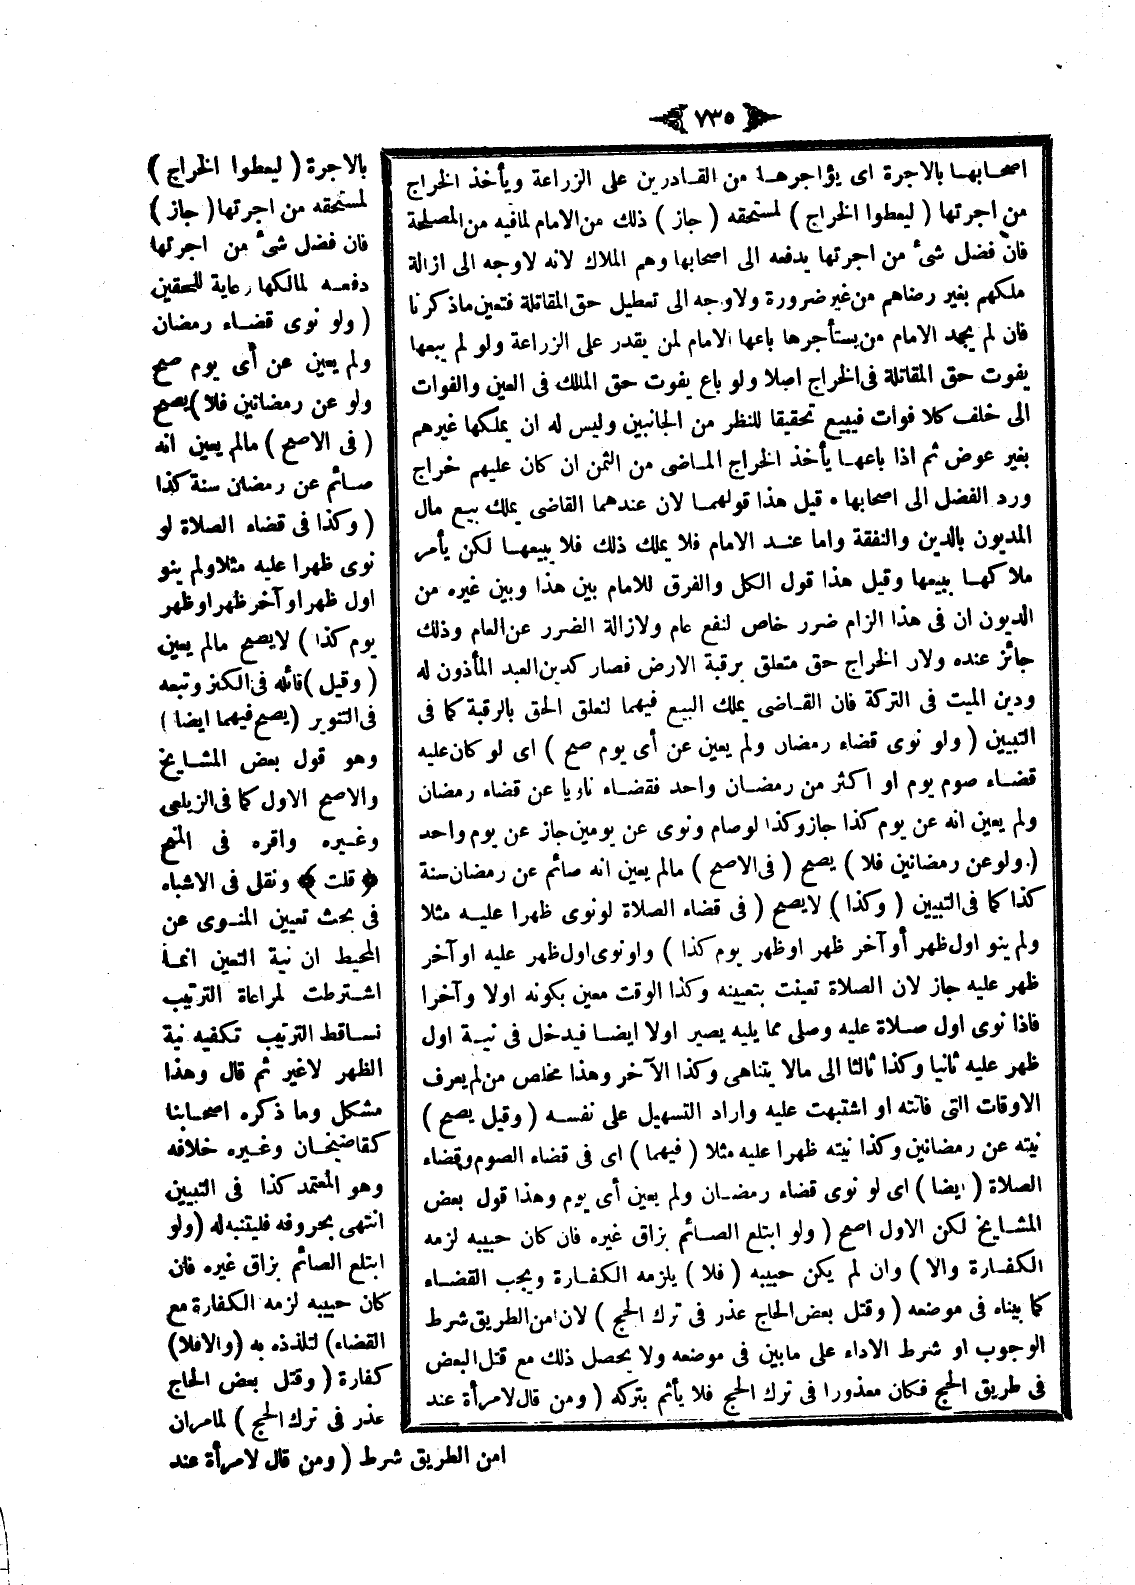 ٧٣٥
اصحابها بالاجرة اى يؤاجرها من القادرين على الزراعة ويأخذ الخراج
من اجرتها ( ليعطوا الخراج ) لمستحقه ( جاز ) ذلك من الامام لمافيه من المصلحة
فان فضل شئ من اجرتها يدفعه الى اصحابها وهم الملاك لانه لاوجه الى ازالة
ملكهم بغير رضاهم من غير ضرورة ولاوجه الى تعطيل حق المقاتلة فتعين ماذكرنا
فان لم يجد الامام من يستأجرها باعها الامام لمن يقدر على الزراعة ولو لم يبعها
يفوت حق المقاتلة فى الخراج اصلا ولو باع يفوت حق المالك فى العين والفوات
الى خلف كلا فوات فيبيع تحقيقا للنظر من الجانبين وليس له ان يملكها غيرهم
بغير عوض ثم اذا باعها يأخذ الخراج الماضى من الثمن ان كان عليهم خراج
ورد الفضل الى اصحابها * قيل هذا قولهما لان عندهما القاضى يملك بيع مال
المديون بالدين والنفقة واما عند الامام فلا يملك ذلك فلا يبيعها لكن يأمر
ملاكها ببيعها وقيل هذا قول الكل والفرق للامام بين هذا وبين غيره من
الديون ان فى هذا الزام ضرر خاص لنفع عام ولازالة الضرر عن العام وذلك
جائز عنده ولان الخراج حق متعلق برقبة الارض فصار كدين العبد المأذون له
ودين الميت فى التركة فان القاضى يملك البيع فيهما لتعلق الحق بالرقبة كما فى
التبيين ( ولو نوى قضاء رمضان ولم يعين عن أى يوم صح ) اى لو كان عليه
قضاء صوم يوم او اكثر من رمضان واحد فقضاء ناويا عن قضاء رمضان
ولم يعين انه عن يوم كذا جاز وكذا لوصام ونوى عن يومين جاز عن يوم واحد
( ولو عن رمضانين فلا ) يصح ( فى الاصح ) مالم يعين انه صائم عن رمضان سنة
كذا كما فى التبيين ( وكذا ) لايصح ( فى قضاء الصلاة لونوى ظهرا عليه مثلا
ولم ينو اول ظهر أو آخر ظهر اوظهر يوم كذا ) ولو نوى اول ظهر عليه او آخر
ظهر عليه جاز لان الصلاة تعينت بتعيينه وكذا الوقت معين بكونه اولا وآخرا
فاذا نوى اول صلاة عليه وصلى مما يليه يصير اولا ايضا فيدخل فى نية اول
ظهر عليه ثانيا وكذا ثالثا الى مالا يتناهى وكذا الآخر وهذا مخلص من لم يعرف
الاوقات التى فاتته او اشتبهت عليه واراد التسهيل على نفسه ( وقيل يصح )
نيته عن رمضانين وكذا نيته ظهرا عليه مثلا ( فيهما ) اى فى قضاء الصوم وقضاء
الصلاة ( ايضا ) اى لو نوى قضاء رمضان ولم يعين أى يوم وهذا قول بعض
المشايخ لكن الاول اصح ( ولو ابتلع الصائم بزاق غيره فان كان حبيبه لزمه
الكفارة والا ) وان لم يكن حبيبه ( فلا ) يلزمه الكفارة ويجب القضاء
كما بيناه فى موضعه ( وقتل بعض الحاج عذر فى ترك الحج ) لان امن الطريق شرط
الوجوب او شرط الاداء على مابين فى موضعه ولا يحصل ذلك مع قتل البعض
فى طريق الحج فكان معذورا فى ترك الحج فلا يأثم بتركه ( ومن قال لامرأة عند
بالاجرة ( ليعطوا الخراج )
لمستحقه من اجرتها ( جاز )
فان فضل شئ من اجرتها
دفعه لمالكها رعاية للحقين
( ولو نوى قضاء رمضان
ولم يعين عن أى يوم صح
ولو عن رمضانين فلا ) يصح
( فى الاصح ) مالم يعين انه
صائم عن رمضان سنة كذا
( وكذا فى قضاء الصلاة لو
نوى ظهرا عليه مثلا ولم ينو
اول ظهر او آخر ظهر اوظهر
يوم كذا ) لايصح مالم يعين
( وقيل ) قائله فى الكنز وتبعه
فى التنوير ( يصح فيهما ايضا )
وهو قول بعض المشايخ
والاصح الاول كما فى الزيلعى
وغيره واقره فى المنح
﴿ قلت ﴾ ونقل فى الاشباه
فى بحث تعيين المنوى عن
المحيط ان نية التعين انما
اشترطت لمراعاة الترتيب
نساقط الترتيب تكفيه نية
الظهر لاغير ثم قال وهذا
مشكل وما ذكره اصحابنا
كقاضيخان وغيره خلافه
وهو المعتمد كذا فى التبيين
انتهى بحروفه فليتنبه له ( ولو
ابتلع الصائم بزاق غيره فان
كان حبيبه لزمه الكفارة مع
القضاء ) لتلذذه به ( والافلا )
كفارة ( وقتل بعض الحاج
عذر فى ترك الحج ) لمامر ان
امن الطريق شرط ( ومن قال لامرأة عند